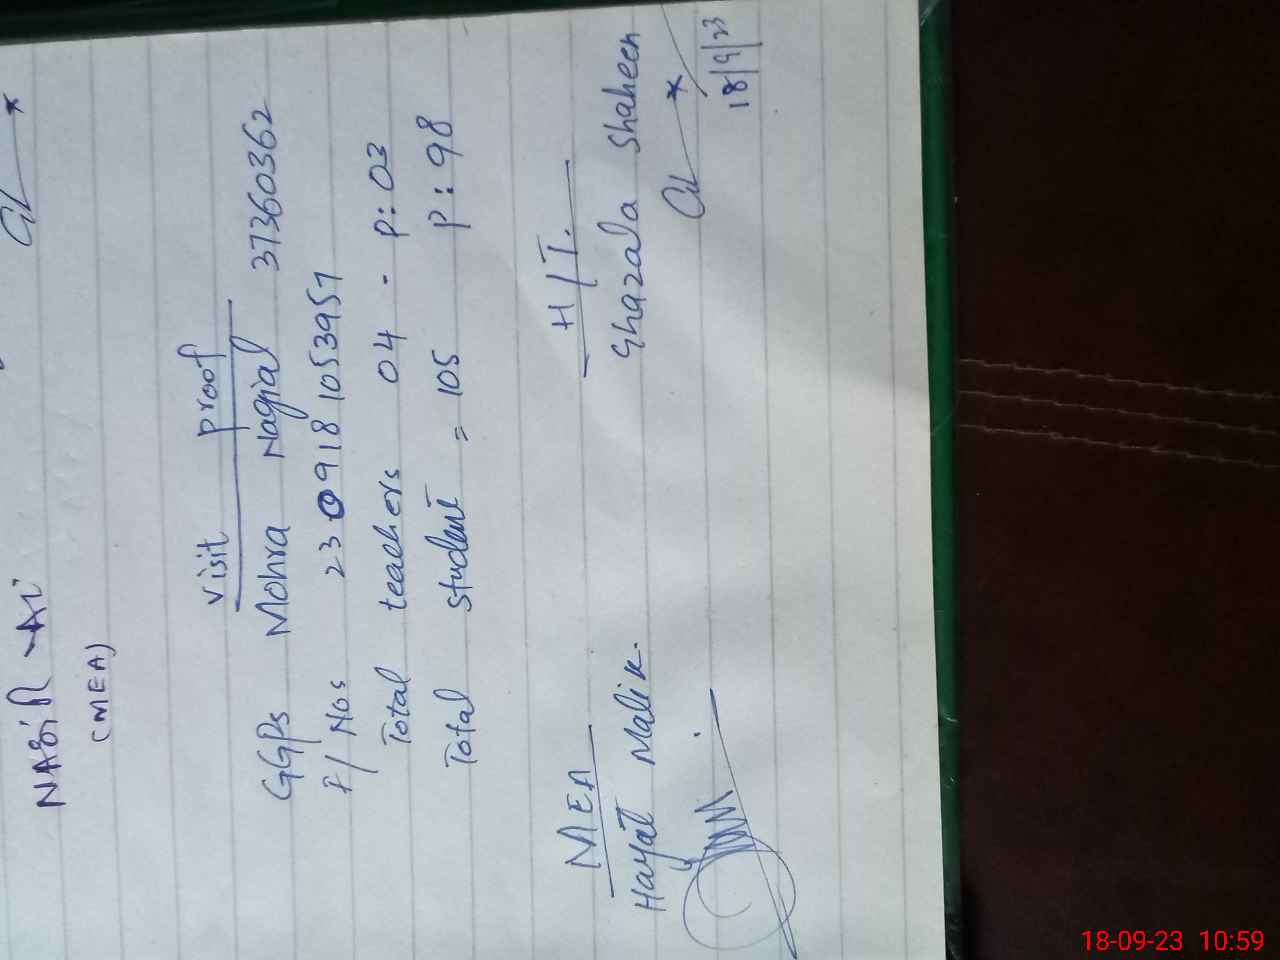 NASiR Ali
(MEA)
Visit proof
GGPs Mohra Nagial 37360362
F/ Nos 230918 1053951
Total teachers 04 - P: 03
Total student = 105 P: 98
MEA H/T.
Hayat Malik. Ghazala Shaheen
18/9/23
18-09-23 10:59